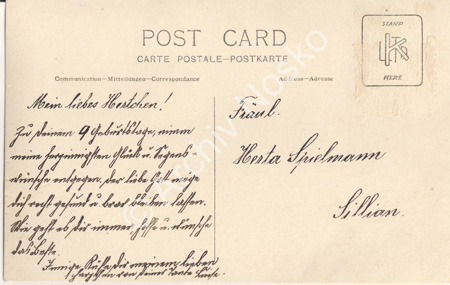 POST CARD
CARTE POSTALE—POSTKARTE
Communication—Mitteilungen—Correspondence
Address—Adresse
STAMP
HERE
Mein liebes Hertchen!
Zu deinem 9 Geburtstage, nimm
meine herzinnigsten Glück u. Segens-
wünsche entgegen, der liebe Gott möge
dich recht gesund u. brav bleiben lassen.
Wie geht es dir immer, hoffe u. wünsche
das Beste.
Innige Küsse dir meinem lieben
von deiner Tante
Fräul.
Herta Spielmann
Sillian.